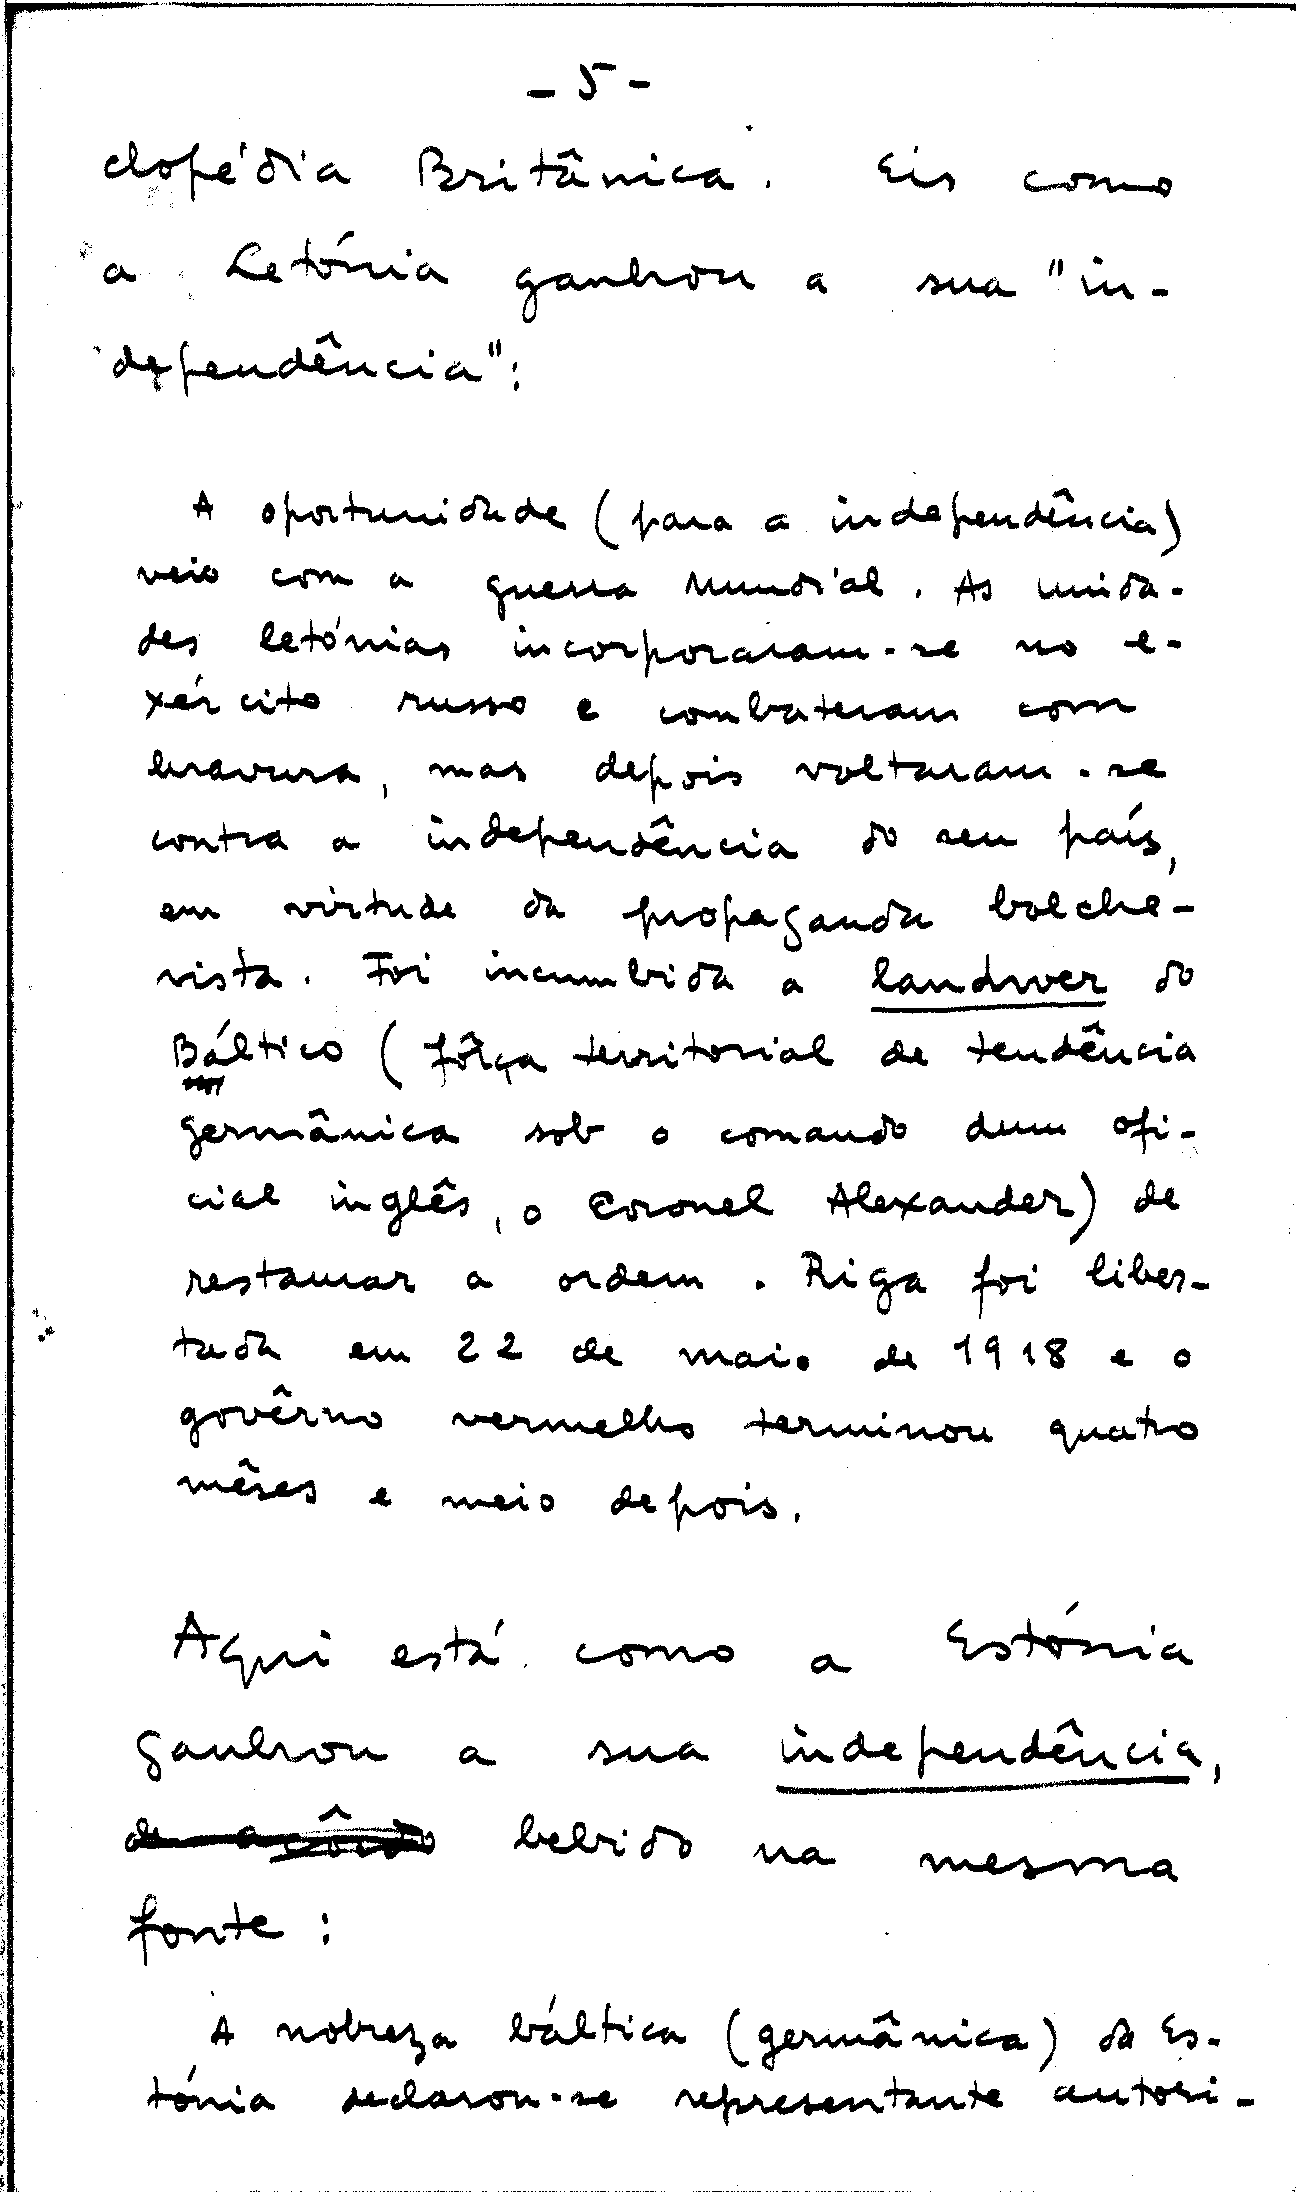 - 5 -
clopédia Britânica. Eis como
a Letónia ganhou a sua "in-
dependência":
A oportunidade (para a independência)
veio com a guerra mundial. As unida-
des letónias incorporaram-se no e-
xército russo e combateram com
bravura, mas depois voltaram-se
contra a independência do seu país,
em virtude da propaganda bolche-
vista. Foi incumbida a landwer do
Báltico (fôrça territorial de tendência
germânica sob o comando dum ofi-
cial inglês, o Coronel Alexander) de
restaurar a ordem. Riga foi liber-
tada em 22 de maio de 1918 e o
govêrno vermelho terminou quatro
mêses e meio depois.
Aqui está como a Estónia
ganhou a sua independência,
de acôrdo bebido na mesma
fonte:
A nobreza báltica (germânica) da Es-
tónia declarou-se representante autori-